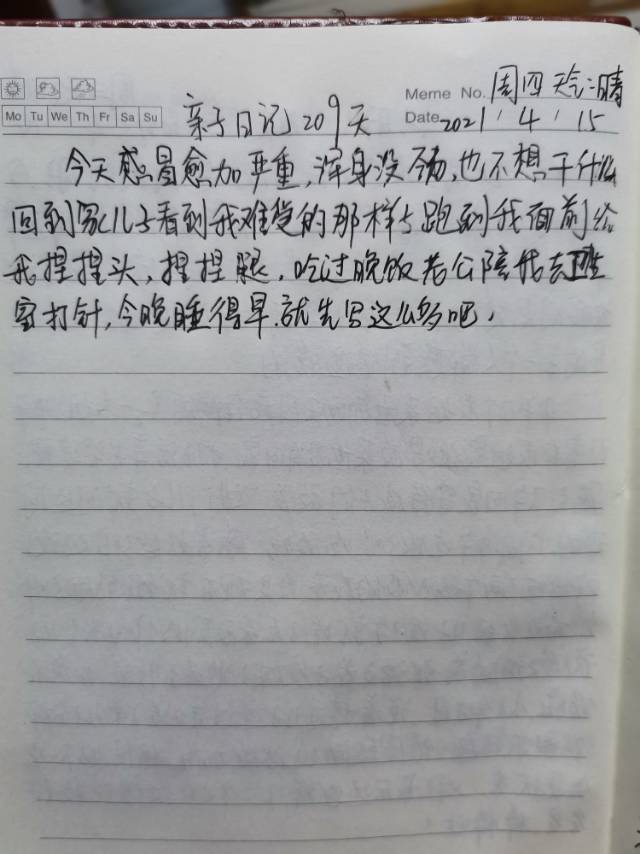 Meme No. 周四 天气:晴
Mo Tu We Th Fr Sa Su
亲子日记209天
Date 2021 / 4 / 15
今天感冒愈加严重,浑身没劲,也不想干什么
回到家儿子看到我难受的那样5跑到我面前给
我捏捏头,捏捏腿,吃过晚饭老公陪我去卫生
室打针,今晚睡得早.就先写这么多吧,